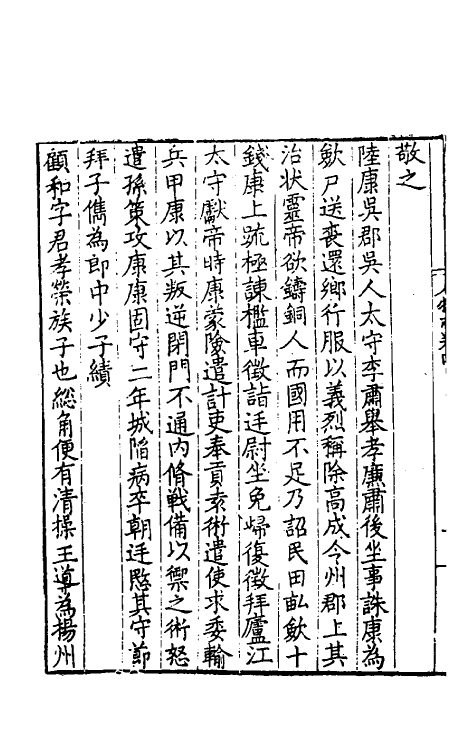 敬之
陸康吳郡吳人太守李肅舉孝廉肅後坐事誅康為
歛尸送喪還鄉行服以義烈稱除高成令州郡上其
治狀靈帝欲鑄銅人而國用不足乃詔民田畆歛十
錢康上䟽極諫檻車徵詣廷尉坐免歸復徵拜廬江
太守獻帝時康蒙險遣計吏奉貢袁術遣使求委輸
兵甲康以其叛逆閉門不通内脩戰備以禦之術怒
遣孫策攻康康固守二年城陷病卒朝廷愍其守節
拜子儁為郎中少子績
顧和字君孝榮族子也総角便有清操王導為揚州